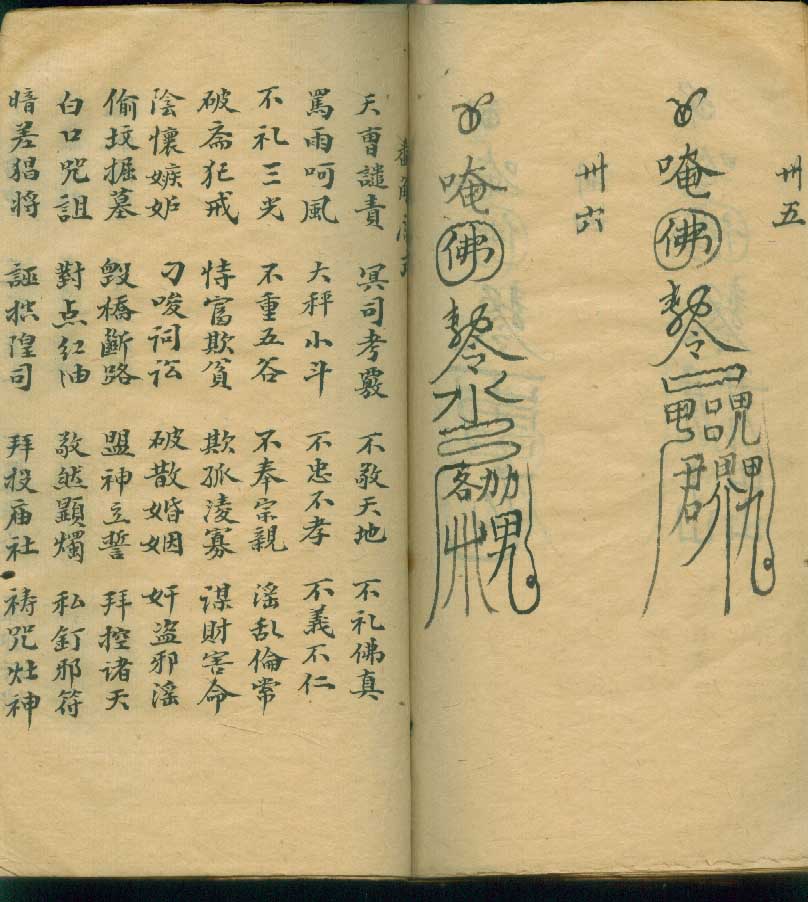 卅五
唵佛
卅六
唵佛
天曹譴責 冥司考覈 不敬天地 不礼佛真
罵雨呵風 大秤小斗 不忠不孝 不義不仁
不礼三光 不重五谷 不奉宗親 滛乱倫常
破斋犯戒 恃富欺貧 欺孤淩寡 谋財害命
陰懷嫉妒 刁唆词讼 破散婚姻 奸盗邪滛
偷坟掘墓 毁橋斷路 盟神立誓 拜控诸天
白口咒詛 對点红油 敬然顕燭 私釘邪符
暗差猖将 誣控隍司 拜投庙社 祷咒灶神